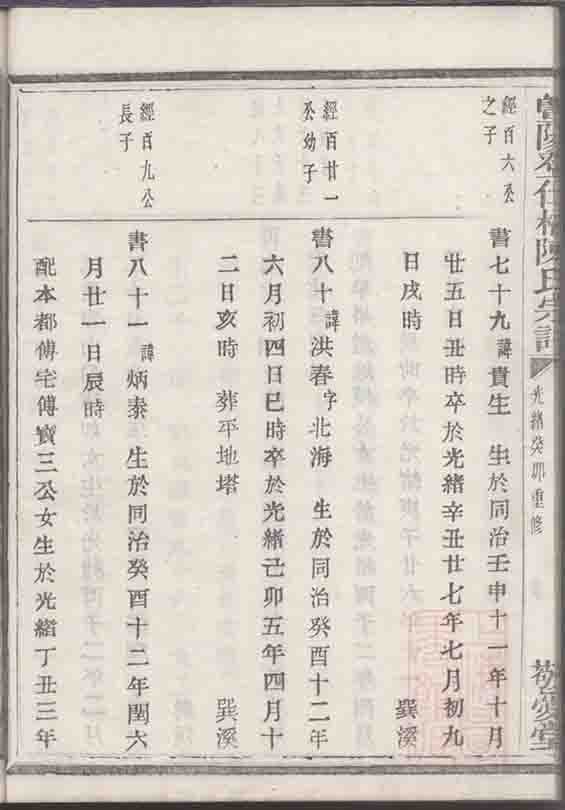 陳氏宗譜
光緒癸卯重修
經百六公
之子
書七十九諱貴生 生於同治壬申十一年十月
廿五日丑時卒於光緒辛丑廿七年七月初九
日戌時 巽溪
經百廿一
公幼子
書八十諱洪春字北海 生於同治癸酉十二年
六月初四日巳時卒於光緒己卯五年四月十
二日亥時 葬平地塔 巽溪
經百九公
長子
書八十一諱炳泰 生於同治癸酉十二年閏六
月廿一日辰時
配本都傅宅傅寶三公女生於光緒丁丑三年